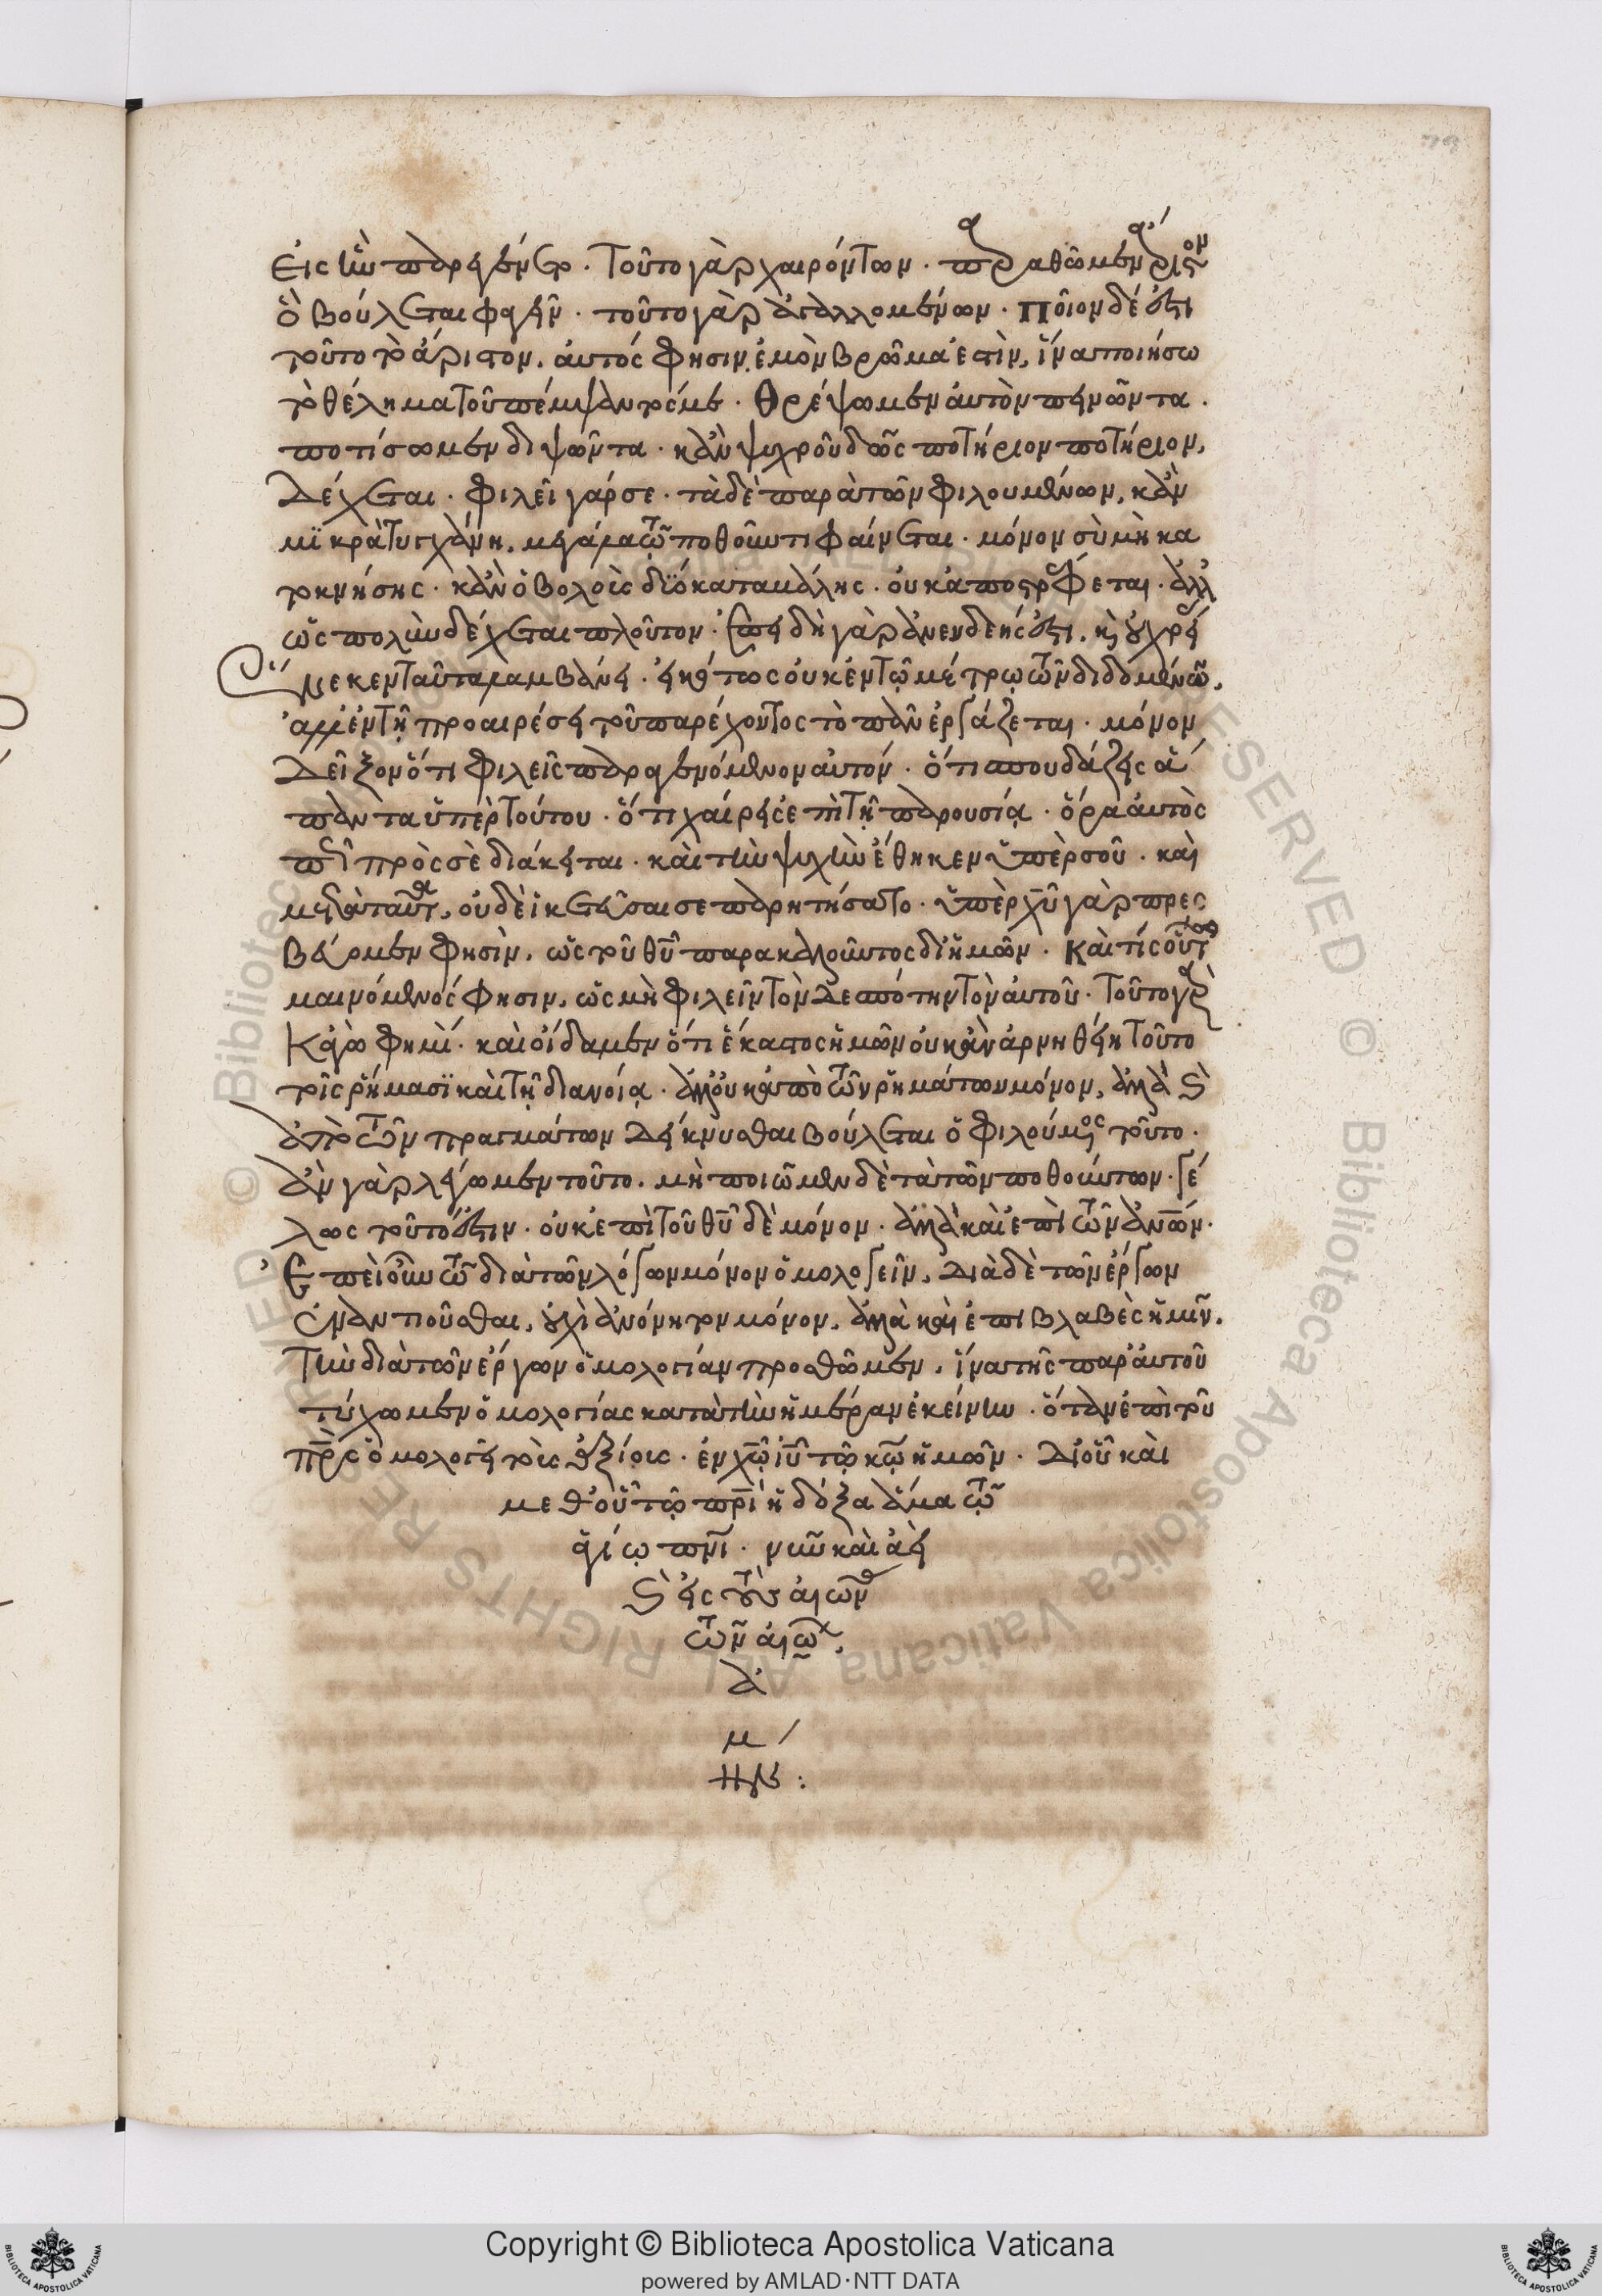 εἰς ἣν παρεγένετο. τοῦτο γὰρ χαιρόντων. παραθῶμεν ἄριστον
ὃ βούλεται φαγεῖν. τοῦτο γὰρ ἀγαλλομένων. ποῖον δέ ἐστι
τοῦτο τὸ ἄριστον, αὐτός φησιν, ἐμὸν βρῶμα ἐστὶν, ἵνα ποιήσω
τὸ θέλημα τοῦ πέμψαντός με. θρέψωμεν αὐτὸν πεινῶντα.
ποτίσωμεν διψῶντα. κἂν ψυχροῦ δῷς ποτήριον ποτήριον,
δέχεται. φιλεῖ γάρ σε. τὰ δὲ παρὰ τῶν φιλουμένων, κἂν
μικρὰ τυγχάνη, μεγάλα τῷ ποθοῦντι φαίνεται. μόνον σὺ μὴ κα
τοκνήσης. κἂν ὀβολοὺς δύο καταβάλης. οὐκ ἀποστρέφεται. ἀλλ'
ὡς πολὺν δέχεται πλοῦτον. ἐπειδὴ γὰρ ἀνενδεής ἐστι, καὶ οὐ χρεί
ας ἕνεκεν ταῦτα λαμβάνει. εἰκότως οὐκ ἐν τῷ μέτρῳ τῶν διδομένων,
ἀλλ' ἐν τῇ προαιρέσει τοῦ παρέχοντος τὸ πᾶν ἐργάζεται. μόνον
δεῖξον ὅτι φιλεῖς παραγενόμενον αὐτόν. ὅτι σπουδάζεις ἅ
παντα ὑπὲρ τούτου. ὅτι χαίρεις ἐπὶ τῇ παρουσίᾳ. ὅρα αὐτὸς
πῶς πρὸς σὲ διάκειται. καὶ τὴν ψυχὴν ἔθηκεν ὑπὲρ σοῦ. καὶ
μετὰ ταῦτα, οὐδὲ ἱκετεῦσαι σε παρητήσατο. ὑπὲρ χῦ γὰρ πρες
βεύομεν φησὶν, ὡς τοῦ θῦ παρακαλοῦντος δι' ἡμῶν. καὶ τίς οὕτως
μαινόμενός φησιν, ὡς μὴ φιλεῖν τὸν δεσπότην τὸν αὐτοῦ. τοῦτο γὰρ
κἀγώ φημί. καὶ οἶδαμεν ὅτι ἕκαστος ἡμῶν οὐκ ἂν ἀρνηθείη τοῦτο
τοῖς ῥήμασι καὶ τῇ διανοίᾳ. ἀλλ' οὐκ ἀπὸ τῶν ῥημάτων μόνον, ἀλλὰ καὶ
ἀπὸ τῶν πραγμάτων δείκνυσθαι βούλεται ὁ φιλούμενος τοῦτο.
ἂν γὰρ λέγωμεν τοῦτο, μὴ ποιῶμεν δὲ τὰ τῶν ποθούντων. γέ
λως τοῦτό ἐστιν. οὐκ ἐπὶ τοῦ θῦ δὲ μόνον. ἀλλὰ καὶ ἐπὶ τῶν ἀνῶν.
ἐπεὶ οὖν τῶ διὰ τῶν λόγων μόνον ὁμολογεῖν, διὰ δὲ τῶν ἔργων
ἐναντιοῦσθαι, οὐχὶ ἀνόνητον μόνον, ἀλλὰ καὶ ἐπιβλαβὲς ἡμῖν,
τὴν διὰ τῶν ἔργων ὁμολογίαν προσθῶμεν, ἵνα τῆς παρ' αὐτοῦ
τύχωμεν ὁμολογίας κατὰ τὴν ἡμέραν ἐκείνην. ὅταν ἐπὶ τοῦ
πρς ὁμολογεῖ τοὺς ἀξίους. ἐν χῶ ιῦ τῷ κῷ ἡμῶν. δι' οὗ καὶ
μεθ' οὗ τῷ πρὶ ἡ δόξα ἅμα τῷ
ἁγίῳ πνι. νῦν καὶ ἀεὶ
καὶ εἰς τοὺς αἰῶνας
τῶν αἰώνων.
ἀ
μ
ήν:
Copyright © Biblioteca Apostolica Vaticana
powered by AMLAD·NTT DATA